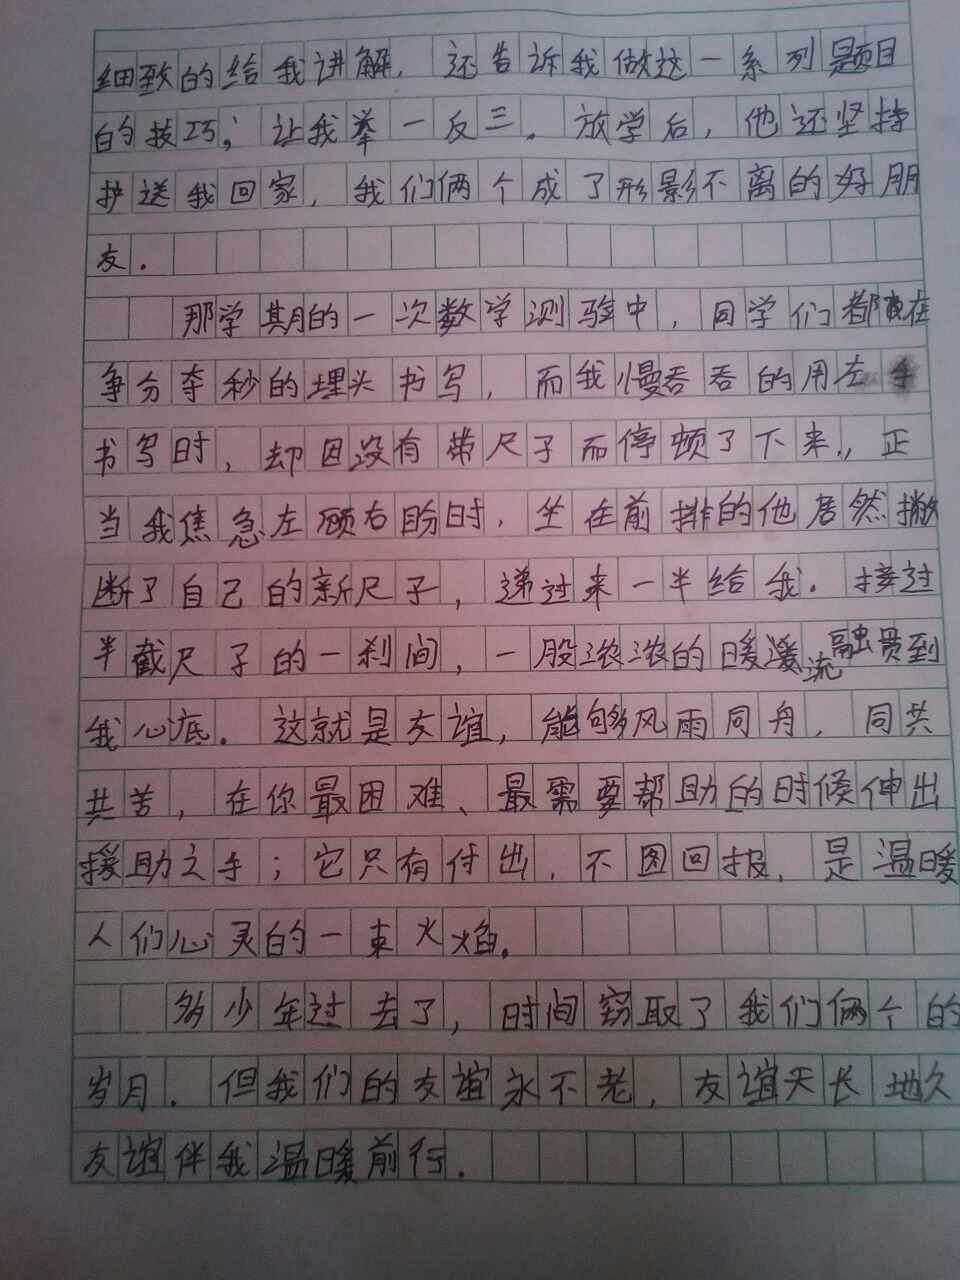 细致的给我讲解，还告诉我做这一系列题目
的技巧，让我举一反三。放学后，他还坚持
护送我回家，我们俩个成了形影不离的好朋
友。
那学期的一次数学测验中，同学们都在
争分夺秒的埋头书写，而我慢吞吞的用左手
书写时，却因没有带尺子而停顿了下来，正
当我焦急左顾右盼时，坐在前排的他居然撇
断了自己的新尺子，递过来一半给我。接过
半截尺子的一刹间，一股浓浓的暖暖流融贯到
我心底。这就是友谊，能够风雨同舟，同共
共苦，在你最困难、最需要帮助的时候伸出
援助之手；它只有付出，不图回报，是温暖
人们心灵的一束火焰。
多少年过去了，时间窃取了我们俩个的
岁月。但我们的友谊永不老，友谊天长地久
友谊伴我温暖前行。